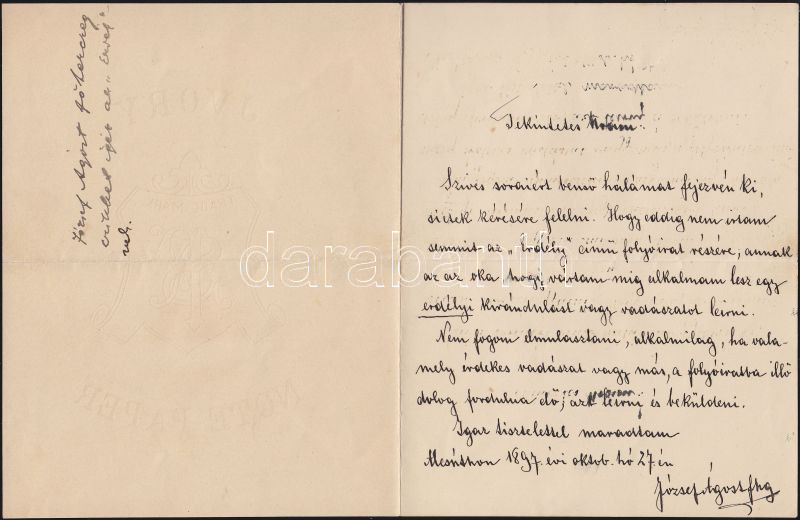 József Ágost főherczeg
cikket igér az "Erdély"-
nek.
Tekintetes
Szives soraiért benső hálámat fejezvén ki,
sietek kérésére felelni. Hogy eddig nem irtam
semmit az „Erdély" cimü folyóirat részére, annak
az az oka hogy vártam mig alkalmam lesz egy
erdélyi kirándulást vagy vadászatot leirni.
Nem fogom elmulasztani, alkalmilag, ha vala-
mely érdekes vadászat vagy más, a folyóiratba illő
dolog fordulna elő, azt leirni és beküldeni.
Igaz tisztelettel maradtam
Alcsúthon 1897. évi oktob. hó 27.-én
József Ágost fhg
darabanth
IVORY
NOTE PAPER